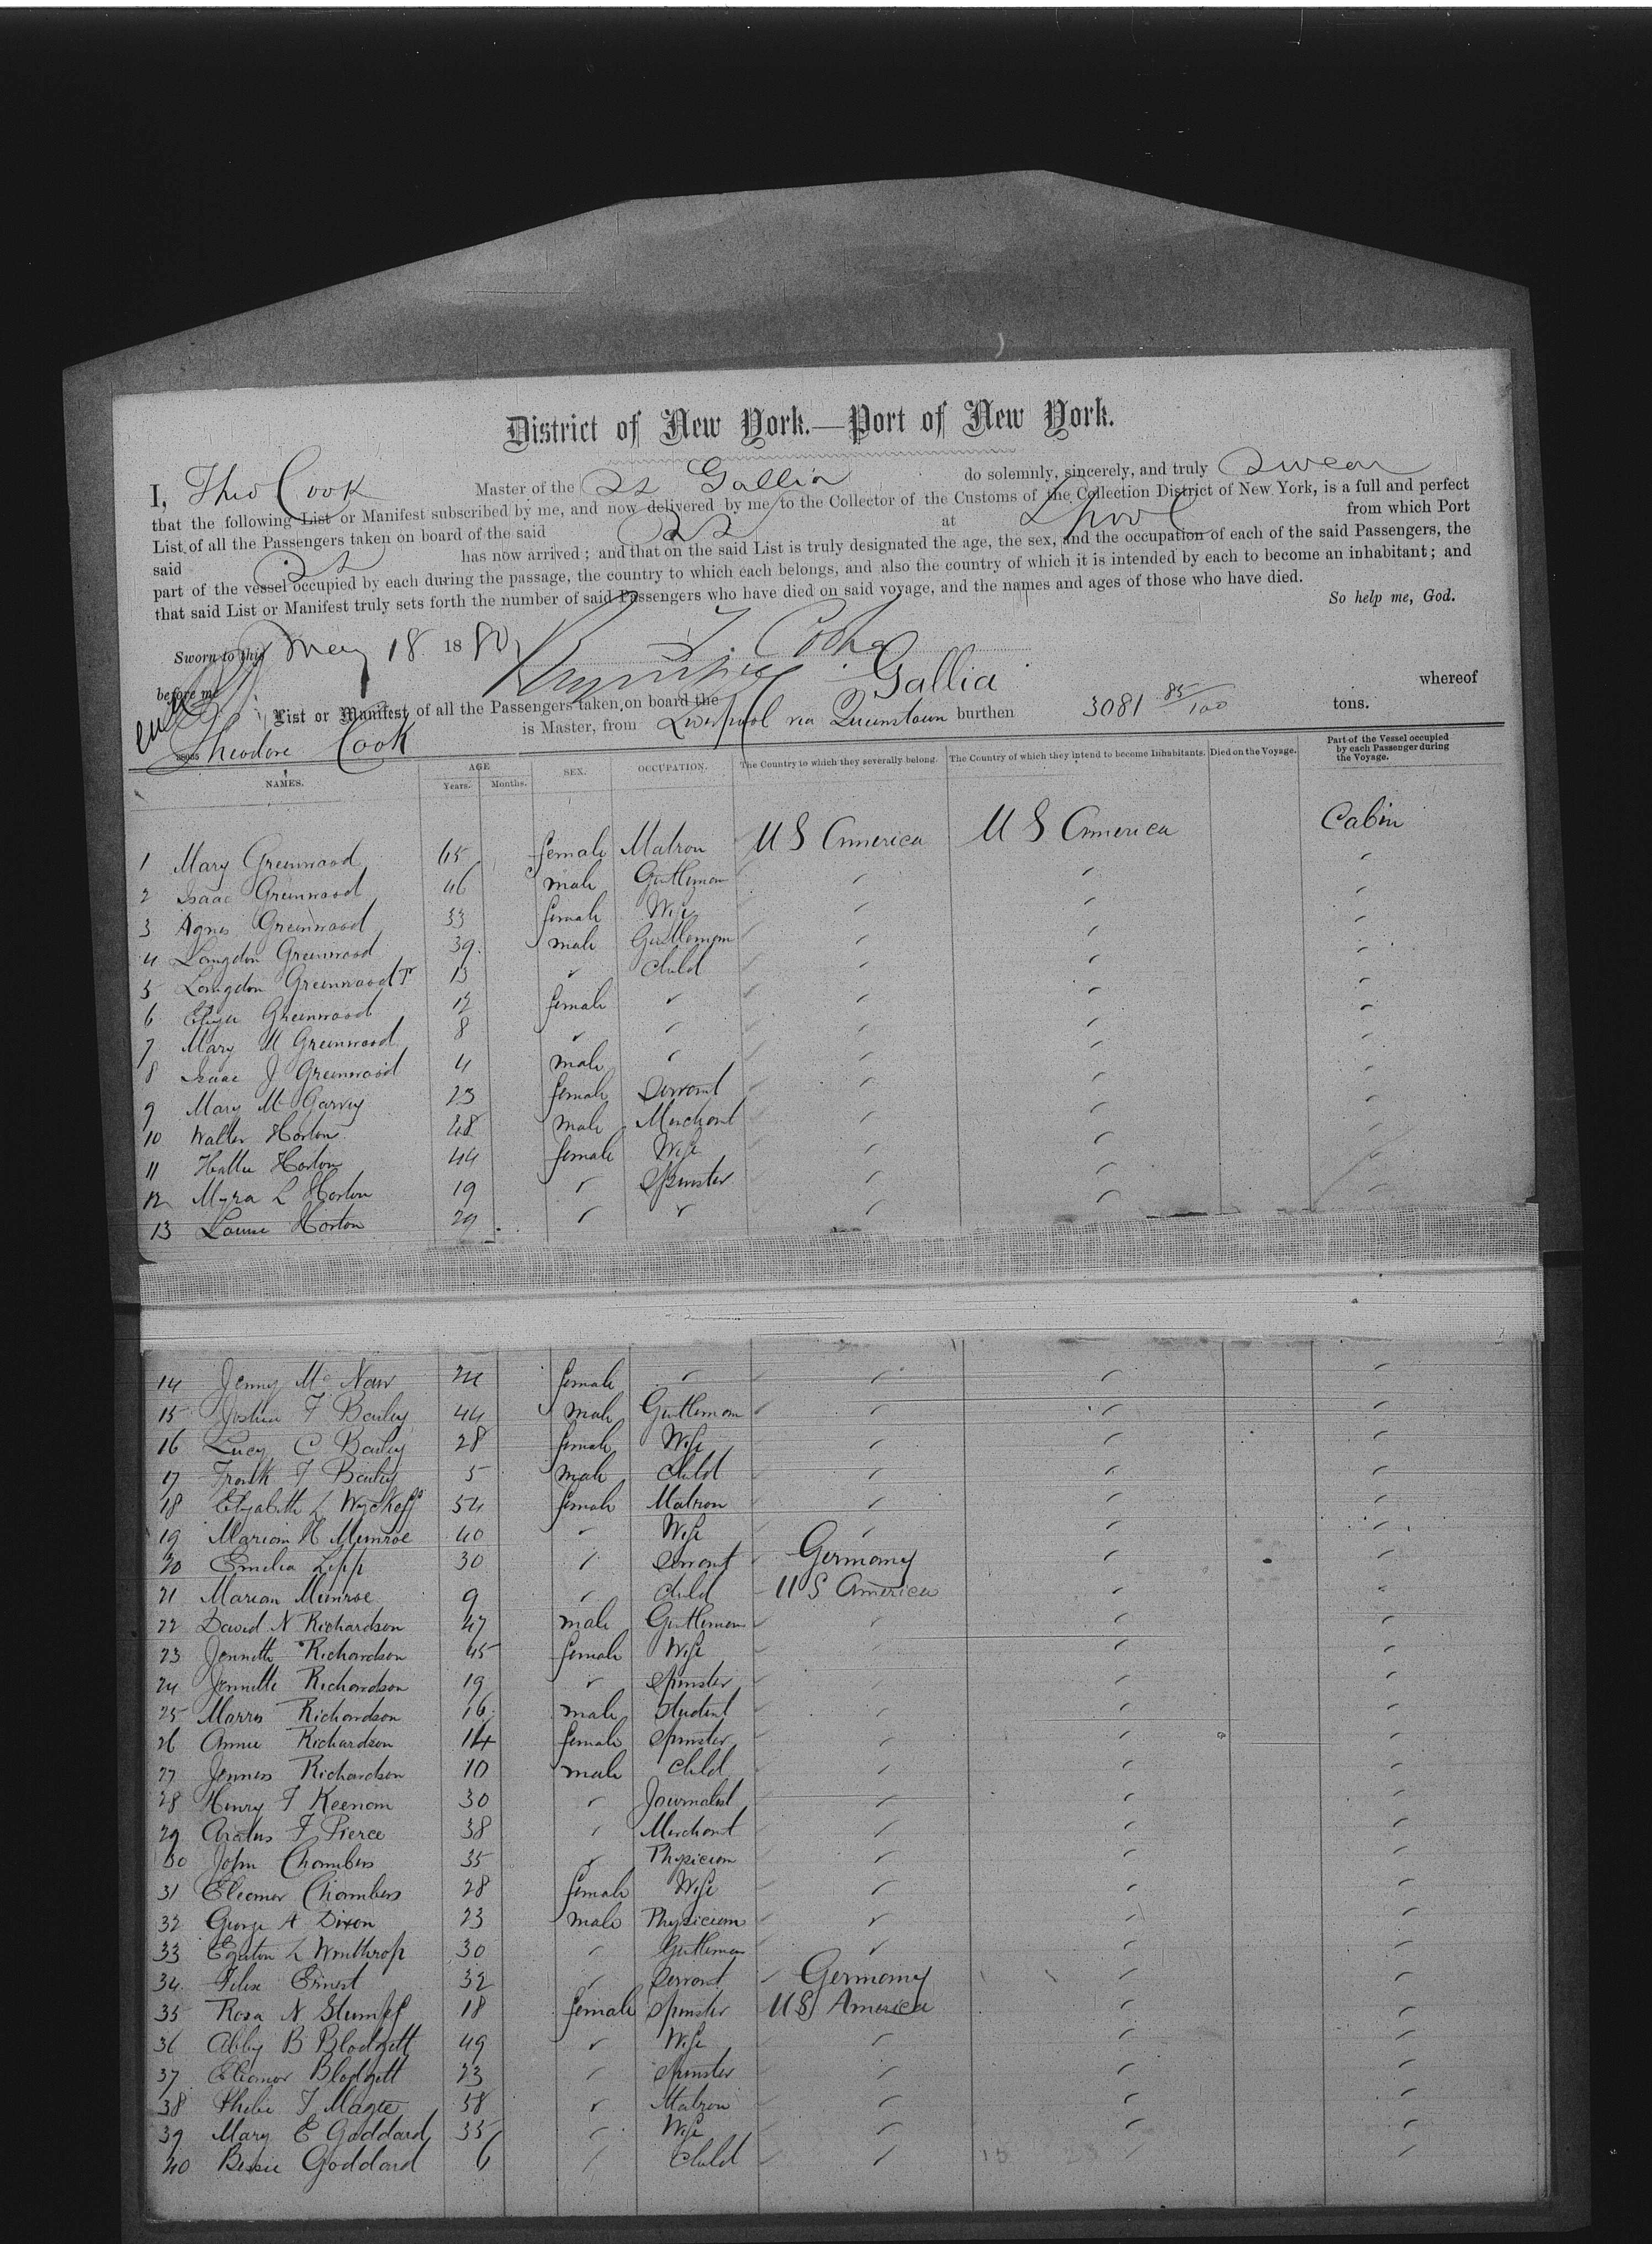 District of New York.—Port of New York.
I, Theo Cook Master of the SS Gallia do solemnly, sincerely, and truly swear
that the following List or Manifest subscribed by me, and now delivered by me to the Collector of the Customs of the Collection District of New York, is a full and perfect
List of all the Passengers taken on board of the said SS at Lpool from which Port
said SS has now arrived; and that on the said List is truly designated the age, the sex, and the occupation of each of the said Passengers, the
part of the vessel occupied by each during the passage, the country to which each belongs, and also the country of which it is intended by each to become an inhabitant; and
that said List or Manifest truly sets forth the number of said Passengers who have died on said voyage, and the names and ages of those who have died.
So help me, God.
Sworn to this May 18 1880
before me
Gallia whereof
List or Manifest of all the Passengers taken on board the
Theodore Cook is Master, from Liverpool via Queenstown burthen 3081 85/100 tons.
NAMES. AGE Years. Months. SEX. OCCUPATION. The Country to which they severally belong. The Country of which they intend to become Inhabitants. Died on the Voyage. Part of the Vessel occupied by each Passenger during the Voyage.
1 Mary Greenwood 65 female Matron U S America U S America Cabin
2 Isaac Greenwood 46 male Gentleman
3 Agnes Greenwood 33 female Wife
4 Langdon Greenwood 39 male Gentleman
5 Langdon Greenwood Jr 13 child
6 Eliza Greenwood 12 female
7 Mary M Greenwood 8
8 Isaac J Greenwood 4 male
9 Mary McGarvey 23 female Servant
10 Walter Horton 48 male Merchant
11 Hattie Horton 44 female Wife
12 Myra L Horton 19 Spinster
13 Louise Horton 29
14 Jenny McNaw 24 female
15 Joshua F Bailey 44 male Gentleman
16 Lucy C Bailey 28 female Wife
17 Frank F Bailey 5 male child
18 Elizabeth L Wyckoff 54 female Matron
19 Marion H Munroe 40 Wife
20 Emelia Lipp 30 Servant Germany
21 Marion Munroe 9 child U S America
22 David N Richardson 47 male Gentleman
23 Jennette Richardson 45 female Wife
24 Jennette Richardson 19 Spinster
25 Morris Richardson 16 male Student
26 Annie Richardson 14 female Spinster
27 Jenness Richardson 10 male Child
28 Henry F Keenan 30 Journalist
29 Aratus F Pierce 38 Merchant
30 John Chambers 35 Physician
31 Eleanor Chambers 28 female Wife
32 George A Dixon 23 male Physician
33 Egerton L Winthrop 30 Gentleman
34 Felix Ernest 32 Servant Germany
35 Rosa N Stumpf 18 female Spinster U S America
36 Abby B Blodgett 49 Wife
37 Eleanor Blodgett 23 Spinster
38 Phebe F Magee 58 Matron
39 Mary E Goddard 35 Wife
40 Bessie Goddard 6 Child